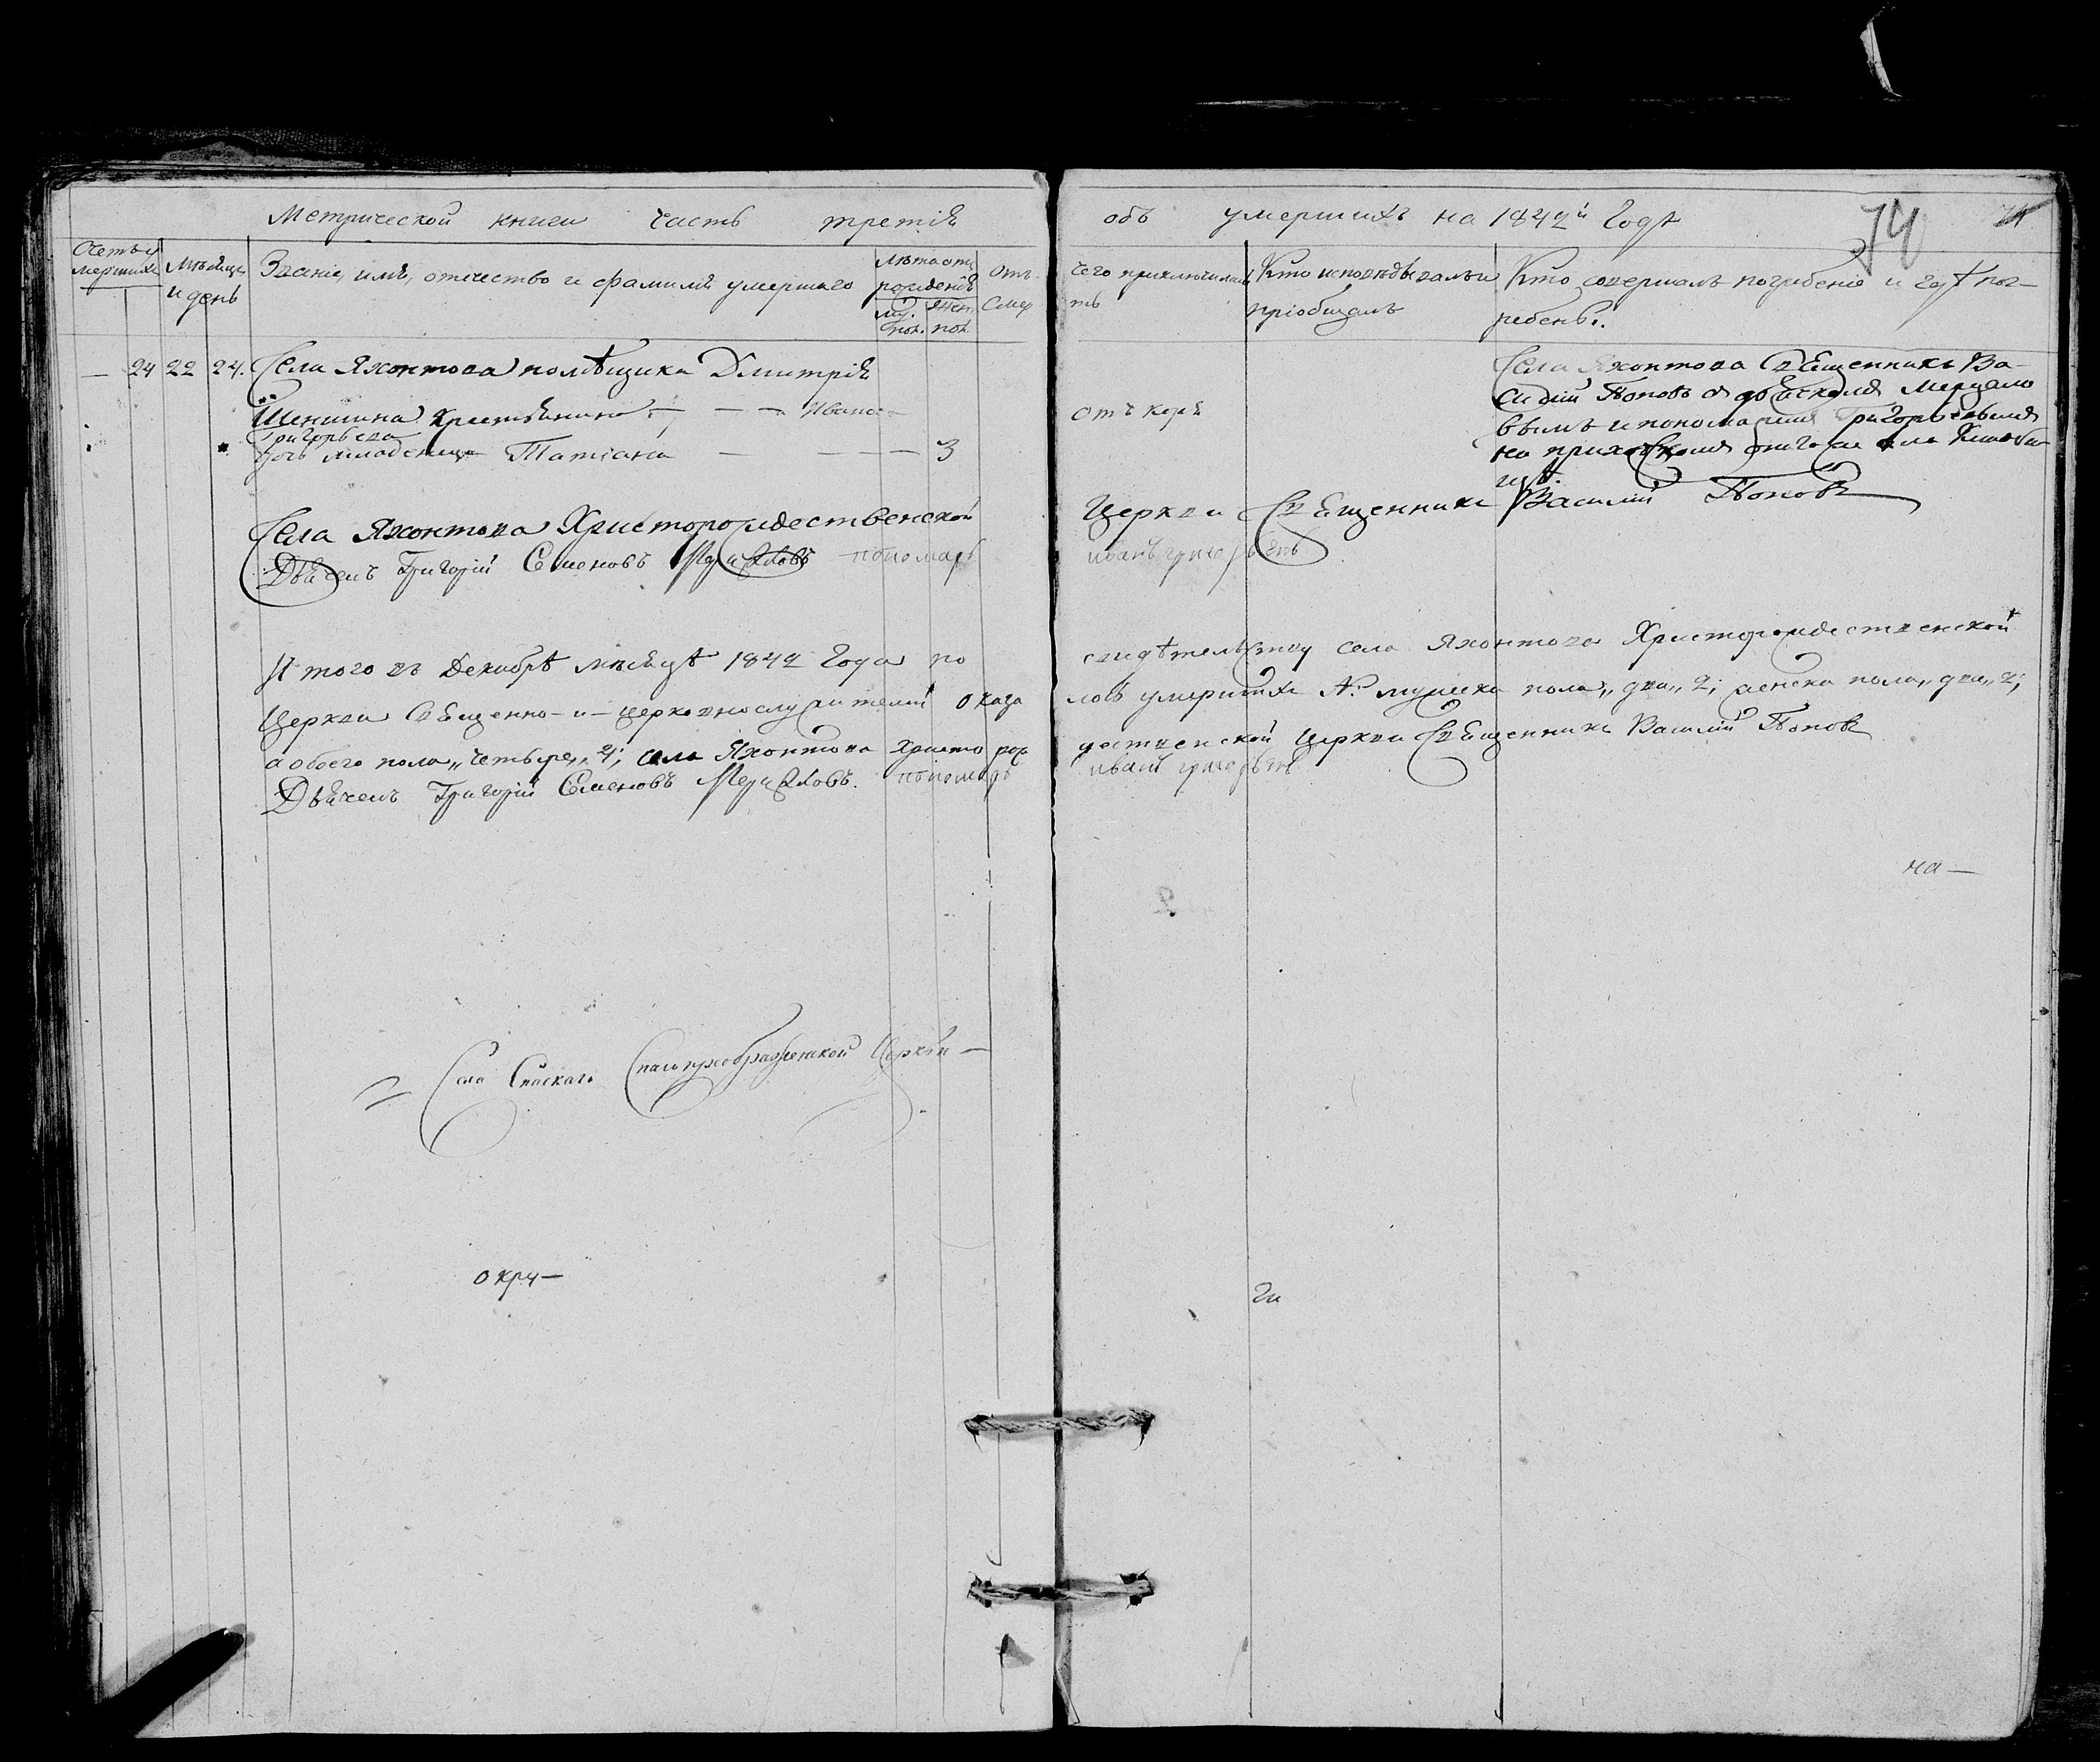 Метрической книги часть третія
объ умершихъ на 1842й Годъ
74
Счетъ у
мершихъ
Мѣсяцъ
и день
Званіе, имя, отчество и фамилія умершаго
Лѣта отъ
рожденія
му.
пол.
жен.
пол.
отъ
смер
чего приключилась
ть
Кто исповѣдывалъ и
пріобщалъ
Кто совершалъ погребеніе и гдѣ пог-
ребенъ.
— 24 22 24. Села Яхонтова помѣщика Дмитрія
Шеншина крестьянина — — — Ивана
Григорьева
дочь младенецъ Татіана — — — 3
отъ коря
Села Яхонтова Священникъ Ва-
силій Поповъ съ дьячкомъ Мерцало
вымъ и пономаремъ Григорьевымъ
на приходскомъ онаго села кладби
щѣ.
Села Яхонтова Христорождественской
Церкви Священникъ Василій Поповъ
Дьячекъ Григорій Семеновъ Мерцаловъ пономарь
иванъ григорьевъ
Итого въ Декабрѣ мѣсяцѣ 1842 Года по
свидѣтельству села Яхонтова Христорождественской
Церкви Священно-и-церковнослужителей оказа
лось умершихъ №: мужеска пола „два„ 2; женска пола „два„ 2;
а обоего пола „четыре„ 4; села Яхонтова Христорож
дественской Церкви Священникъ Василій Поповъ
Дьячекъ Григорій Семеновъ Мерцаловъ. пономарь
иванъ григорьевъ
на —
Села Спаскаго Спасопреображенской Церкви —
окру —
ги